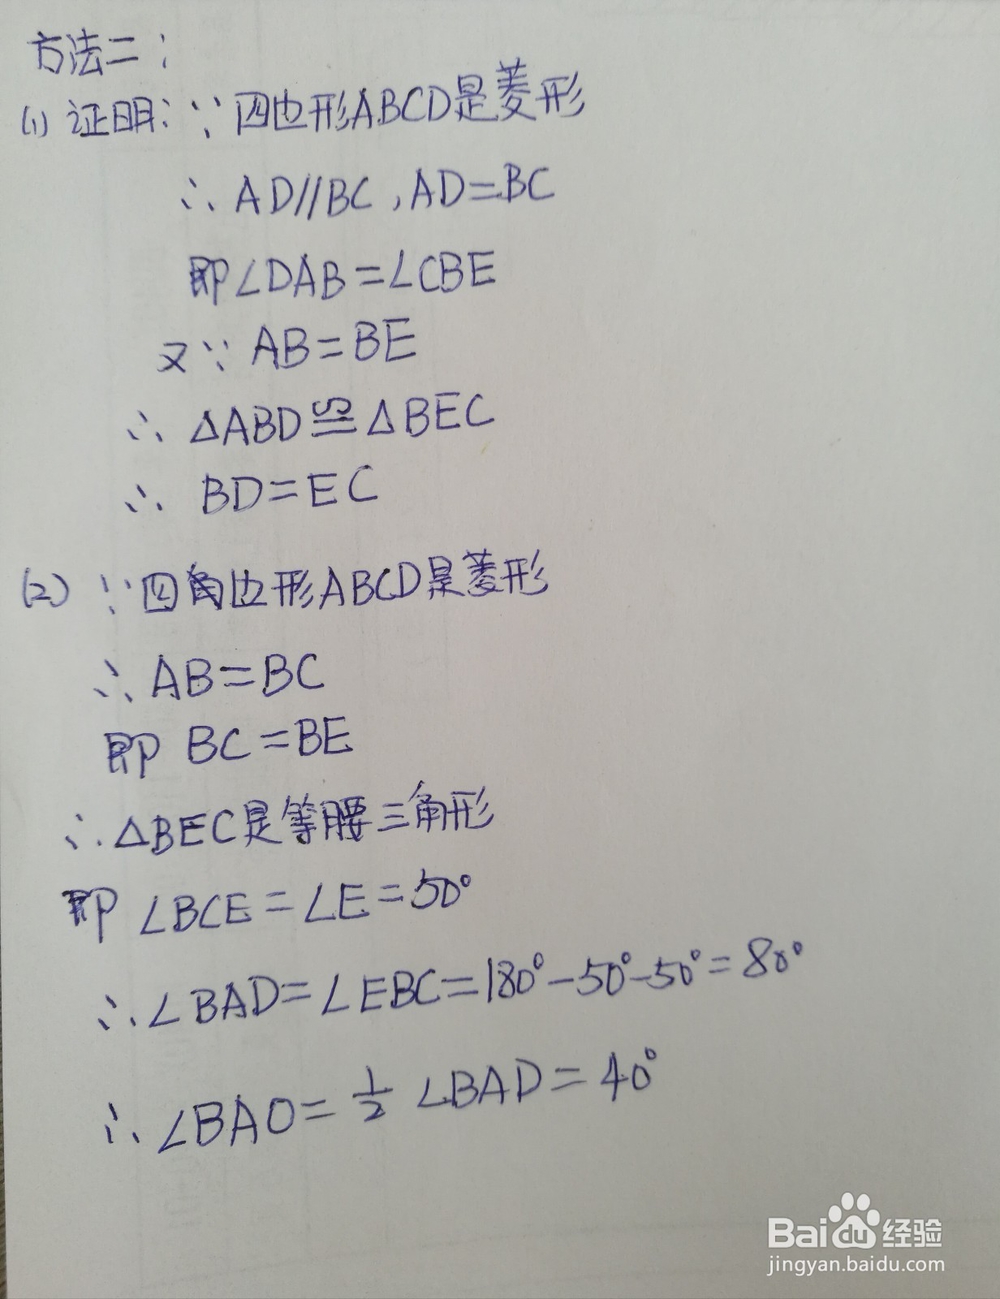 方法二：
(1) 证明：∵四边形ABCD是菱形
∴AD//BC，AD=BC
即∠DAB=∠CBE
又∵AB=BE
∴△ABD≌△BEC
∴BD=EC
(2) ∵四角边形ABCD是菱形
∴AB=BC
即 BC=BE
∴△BEC是等腰三角形
即∠BCE=∠E=50°
∴∠BAD=∠EBC=180°-50°-50°=80°
∴∠BAO=1/2∠BAD=40°
Baidu经验
jingyan.baidu.com